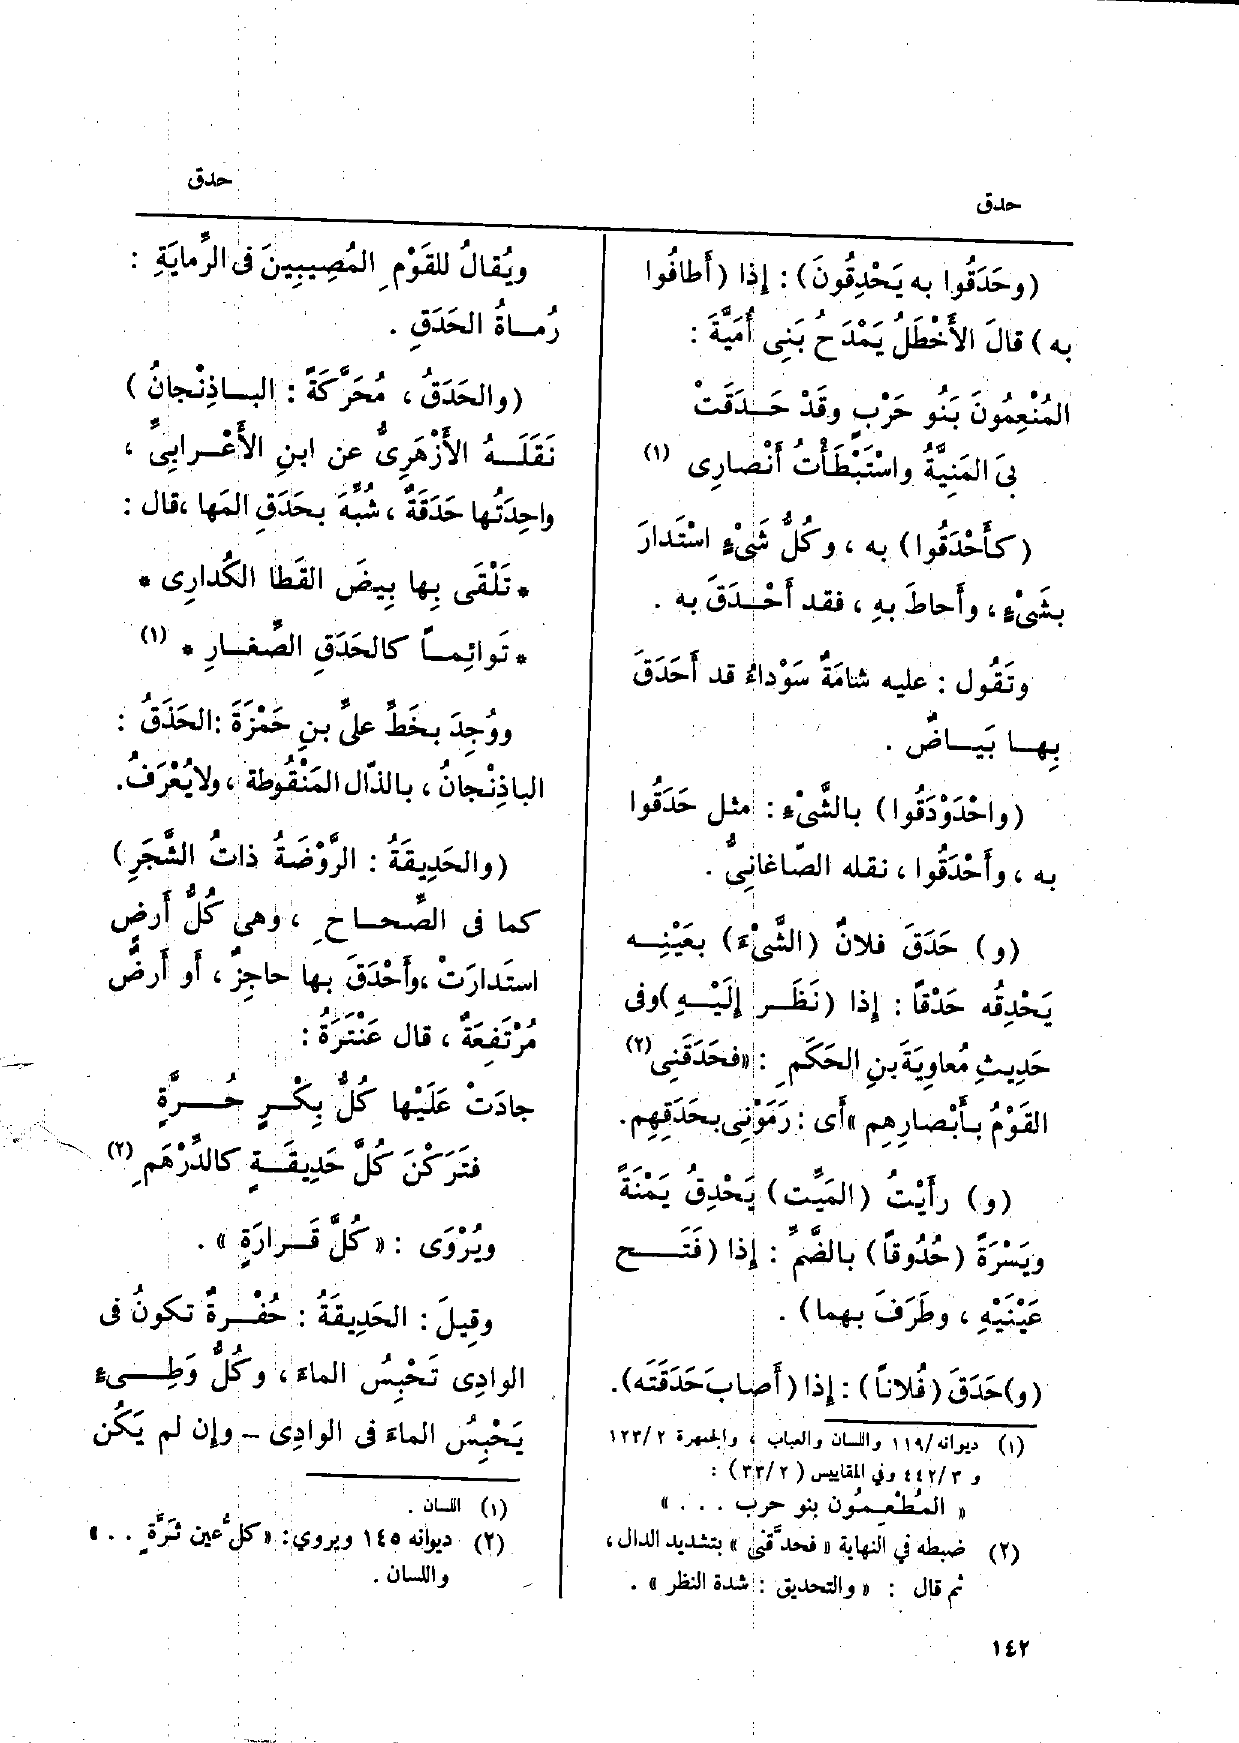 حدق
حدق
(وحَدَقُوا به يَحْدِقُونَ) : إذا (أَطافُوا
به) قالَ الأَخْطَلُ يَمْدَحُ بَنِى أُمَيَّةَ :
المُنْعِمُونَ بَنُو حَرْبٍ وقَدْ حَــدَقَتْ
بِىَ المَنِيَّةُ واسْتَبْطَأْتُ أَنْصارِى (١)
(كأَحْدَقُوا) به ، وكُلُّ شَىْءٍ اسْتَدارَ
بشَىْءٍ ، وأَحاطَ بهِ ، فقد أَحْــدَقَ به .
وتَقُول : عليه شامَةٌ سَوْداءُ قد أَحَدَقَ
بِهــا بَيَــاضٌ .
(واحْدَوْدَقُوا) بالشَّىْءِ : مثل حَدَقُوا
به ، وأَحْدَقُوا ، نقله الصّاغانِىُّ .
(و) حَدَقَ فلانٌ (الشَّىْءَ) بعَيْنِــه
يَحْدِقُه حَدْقاً : إذا (نَظَــر إِلَيْــهِ) وفى
حَدِيثِ مُعاوِيَةَ بنِ الحَكَمِ : «فحَدَقَنِى (٢)
القَوْمُ بأَبْصارِهِم » أَى : رَمَوْنِى بحَدَقِهِم.
(و) رأَيْتُ (المَيِّت) يَحْدِقُ يَمْنَةً
ويَسْرَةً (حُدُوقاً) بالضَّمِّ : إذا (فَتَــح
عَيْنَيْهِ ، وطَرَفَ بهما) .
(و) حَدَقَ (فُلاناً) : إذا (أَصابَ حَدَقَتَه).
(١) ديوانه /١١٩ واللسان والعباب ، والجمهرة ١٢٣/٢
و ٤٤٢/٣ وفي المقاييس (٣٣/٢) :
« المُطْعِمُون بنو حرب . . . »
(٢) ضبطه في النهاية « فحدَّقَنى » بتشديد الدال ،
ثم قال : « والتحديق : شدة النظر » .
١٤٢
ويُقالُ للقَوْمِ المُصِيبِينَ فى الرِّمايَةِ :
رُمــاةُ الحَدَقِ .
(والحَدَقُ ، مُحَرَّكَةً : البــاذِنْجانُ)
نَقَلَــهُ الأَزْهَرِىُّ عن ابنِ الأَعْــرابِىِّ ،
واحِدَتُها حَدَقَةٌ ، شُبِّهَ بحَدَقِ المَها ،قال :
* تَلْقَى بِها بِيضَ القَطا الكُدارِى *
* تَوائِمــاً كالحَدَقِ الصِّغــارِ * (١)
ووُجِدَ بخَطِّ علىِّ بنِ حَمْزَةَ :الحَذَقُ :
الباذِنْجانُ ، بالذّال المَنْقُوطة ، ولا يُعْرَفُ.
(والحَدِيقَةُ : الرَّوْضَةُ ذاتُ الشَّجَرِ)
كما فى الصِّحــاحِ ، وهى كُلُّ أَرضٍ
استَدارَتْ ،وأَحْدَقَ بها حاجِزٌ ، أو أَرضٌ
مُرْتَفِعَةٌ ، قال عَنْتَرَةُ :
جادَتْ عَلَيْها كُلُّ بِكْــرٍ حُــرَّةٍ
فتَرَكْنَ كُلَّ حَدِيقَــةٍ كالدِّرْهَمِ (٢)
ويُرْوَى : « كُلَّ قَــرارَةٍ » .
وقِيلَ : الحَدِيقَةُ : حُفْــرةٌ تكونُ فى
الوادِى تَحْبِسُ الماءَ ، وكُلُّ وَطِــىءٍ
يَحْبِسُ الماءَ فى الوادِى – وإن لم يَكُن
(١) اللسان .
(٢) ديوانه ١٤٥ ويروي: « كلُّ عين ثَرَّةٍ . . »
واللسان .